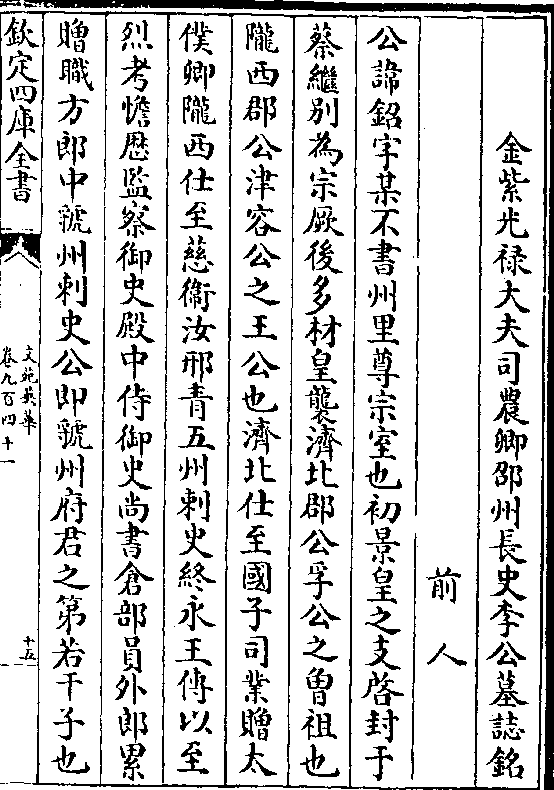 金紫光禄大夫司農卿邵州長史李公墓誌銘
前人
公諱銘字某不書州里尊宗室也初景皇之支啓封于
蔡繼别為宗厥後多材皇襲濟北郡公孚公之曽祖也
隴西郡公津容公之王公也濟北仕至國子司業贈太
僕卿隴西仕至慈衞汝邢青五州刺史終永王傅以至
烈考憺歴監察御史殿中侍御史尚書倉部員外郎累
贈職方郎中虢州刺史公即虢州府君之第若干子也
欽定四庫全書
文苑英華
卷九百四十一
十五